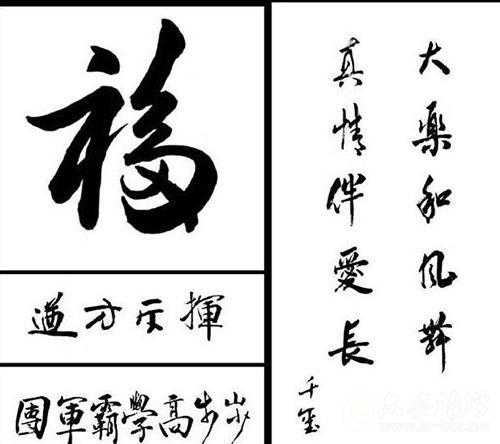 福
揮斥方遒
步步高學霸軍團
大樂和風舞
真情伴愛長
千玺